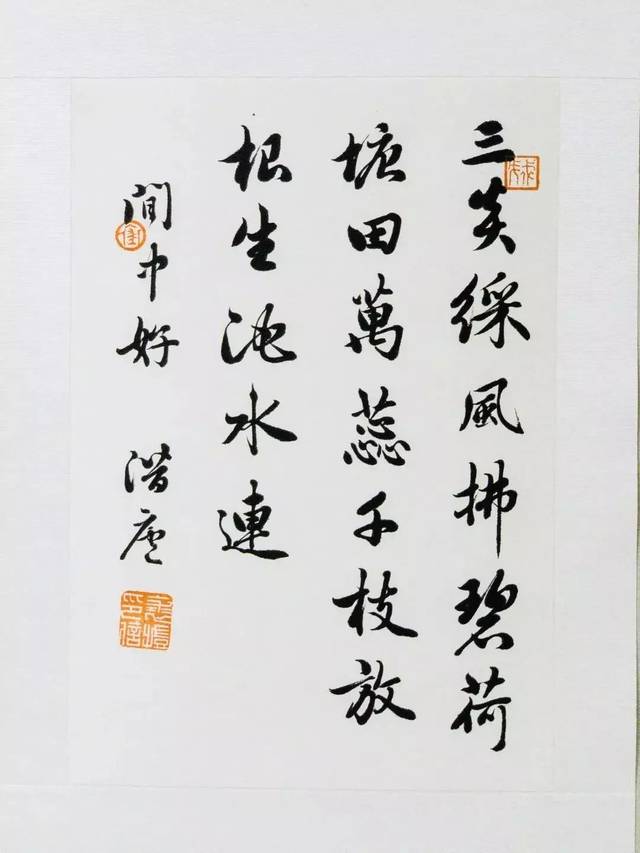 三炎綵風拂碧荷
塘田萬蕊千枝放
根生池水連
閒中好 潛廬